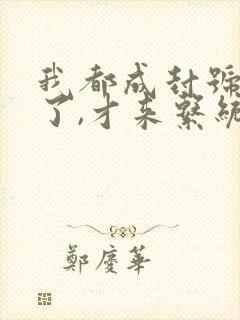 我都成封號
了,才来繫統
鄭慶華